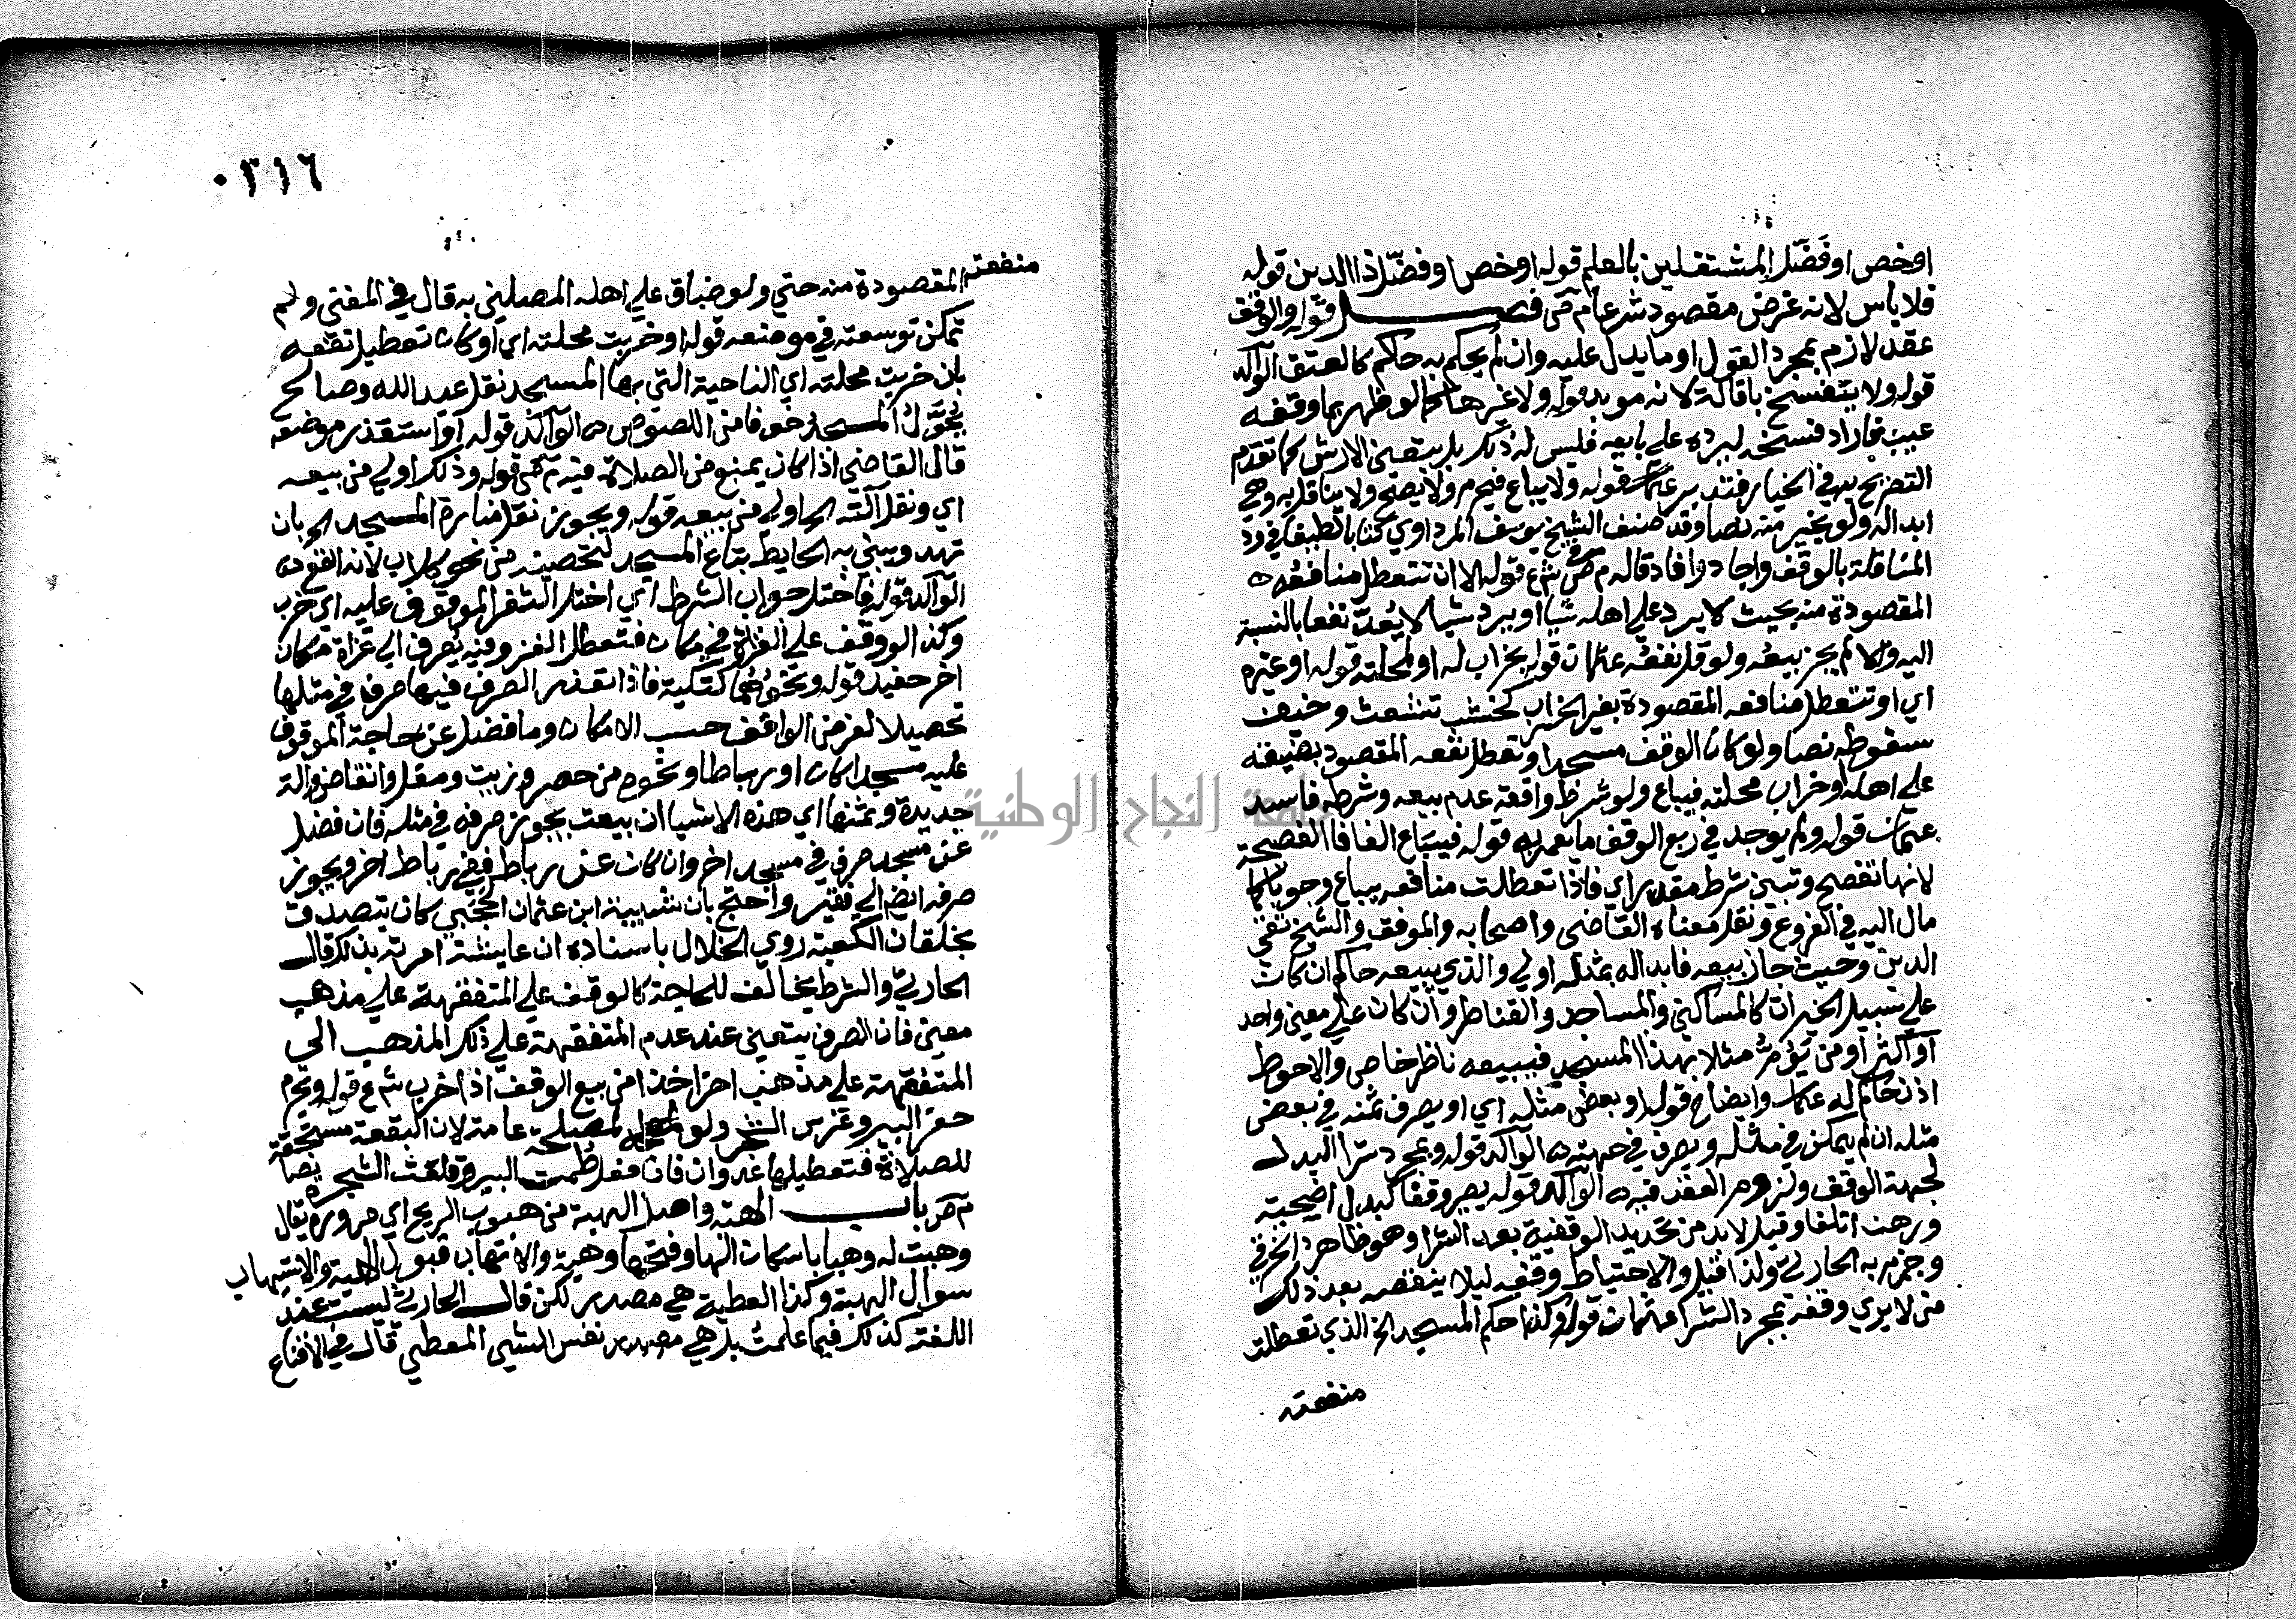 او خص او فَضّل المشتغلين بالعلم قوله او خص او فضّل ذا الدين قوله
فلا باس لانه غرض مقصود شرعا م ص فصل قوله والوقف
عقد لازم بمجرد القول او ما يدل عليه وان لم يحكم به حاكم كالعتق الوالد
قوله ولا ينفسخ باقالة لانه موبد قوله ولا غيرها كما لو ظهر بما وقفه
عيب فاراد فسخه ليرده على بايعه فليس له ذلك بل يتعين الارش كما تقدم
التصريح به في الخيار قوله ولا يباع فيحرم ولا يصح ولا يناقل به وهي
ابداله ولو بخير منه نصا وقد صنف الشيخ يوسف المرداوي كتابا لطيفا في رد
المناقلة بالوقف واجاد وافاد قاله م ص ش ع قوله الا ان تتعطل منافعه
المقصودة منه بحيث لا يرد على اهله شيا او يرد شيا لا يُعدّ نفعا بالنسبة
اليه والا لم يجز بيعه ولو قل نفعه عثمان قوله بخراب له او لمحلته قوله او غيره
اي او تتعطل منافعه المقصودة بغير الخراب كخشب تشعث وخيف
سقوطه نصا ولو كان الوقف مسجدا وتعطل نفعه المقصود بضيقه
على اهله او خراب محلته فيباع ولو شرط واقفه عدم بيعه وشرطه فاسد
عثمان قوله ولم يوجد في ريع الوقف ما يعمر به قوله فيباع الفا فا الفصيحة
لانها تفصح وتبين شرط مقدر اي فاذا تعطلت منافعه يباع وجوبا كما
مال اليه في الفروع ونقل معناه القاضي واصحابه والموفق والشيخ تقي
الدين وحيث جاز بيعه فابداله بمثله اولى والذي يبيعه حاكم ان كان
على سبيل الخيرات كالمساكين والمساجد والقناطر وان كان على معين واحد
او اكثر او من يؤمّ مثلا بهذا المسجد فيبيعه ناظر خاص والاحوط
اذن حاكم له عثمان وايضاح قوله او بعض مثله اي او يصرف ثمنه في بعض
مثله ان لم يمكن في مثله ويصرف في جهته ه الوالد قوله وبمجرد شرا البدل
لجهة الوقف ولزوم العقد فيه ه الوالد قوله يصير وقفا كبدل اضحية
ورهن اتلفا وقيل لابد من تجديد الوقفية بعد الشرا وهو ظاهر الخرقي
وجزم به الحارثي ولذا قيل والاحتياط وقفه ليلا ينقضه بعد ذلك
من لا يرى وقفه بمجرد الشرا عثمان قوله وكذا حكم المسجد الخ الذي تعطلت
منفعته
٠٣١٦
منفعته المقصودة منه حتى ولو ضاق على اهله المصلين به قال في المغني ولم
تمكن توسعته في موضعه قوله او خربت محلته اي او كان تعطيل نفعه
بان خربت محلته اي الناحية التي بها المسجد نقل عبد الله وصالح
يُحَوّل المسجد خوفا من اللصوص ه الوالد قوله او استقذر موضعه
قال القاضي اذا كان يمنع من الصلاة فيه م ص قوله وذلك اولى من بيعه
اي ونقل آلته الخ اولى من بيعه قوله ويجوز نقل منارة المسجد الخ بان
تهد ويبنى به الحايط بتاع المسجد لتحصينه من نحو كلاب لانه انفع ه
الوالد قوله فاختل جواب الشرط اي اختل الثغر الموقوف عليه اي خرب
وكذا لو وقف على الغزاة في مكان فتعطل الغزو فيه يُصرف الى غزاة مكان
اخر حفيد قوله ونحوُهما كتكية فاذا تعذر الصرف فيها صرف في مثلها
تحصيلا لغرض الواقف حسب الامكان وما فضل عن حاجة الموقوف
عليه مسجدا كان او رباطا او نحوه من حصر وزيت ومغل وانقاض وآلة
جديدة وثمنها اي هذه الاشيا ان بيعت يجوز صرفه في مثله فان فضل
عن مسجد صرف في مسجد اخر وان كان عن رباط ففي رباط اخر ويجوز
صرفه ايضا الى فقير واحتج بان شيبة ابن عثمان الحجبي كان يتصدق
بخلقان الكعبة روى الخلال باسناده ان عايشة امرته بذلك قال
الحارثي والشرط يخالف للحاجة كالوقف على المتفقهة على مذهب
معين فان الصرف يتعين عند عدم المتفقهة على ذلك المذهب الى
المتفقهة على مذهب اخر اخذا من بيع الوقف اذا خرب ش ع قوله ويحرم
حفر البير وغرس الشجر ولو لمصلحة عامة لان البقعة مستحقة
للصلاة فتعطيلها عدوان فان فعل طمت البير وقلعت الشجرة نصا
م ص باب الهبة واصل الهبة من هبوب الريح اي مروره يقال
وهبت له وهبا باسكان الها وفتحها وهبة والاتهاب قبول الهبة والاستيهاب
سوال الهبة وكذا العطية هي مصدر لكن قال الحارثي ليست عند
اللغة كذلك فيما علمتُ بل هي مصدر نفس الشي المعطى قال في الاقناع
جامعة النجاح الوطنية